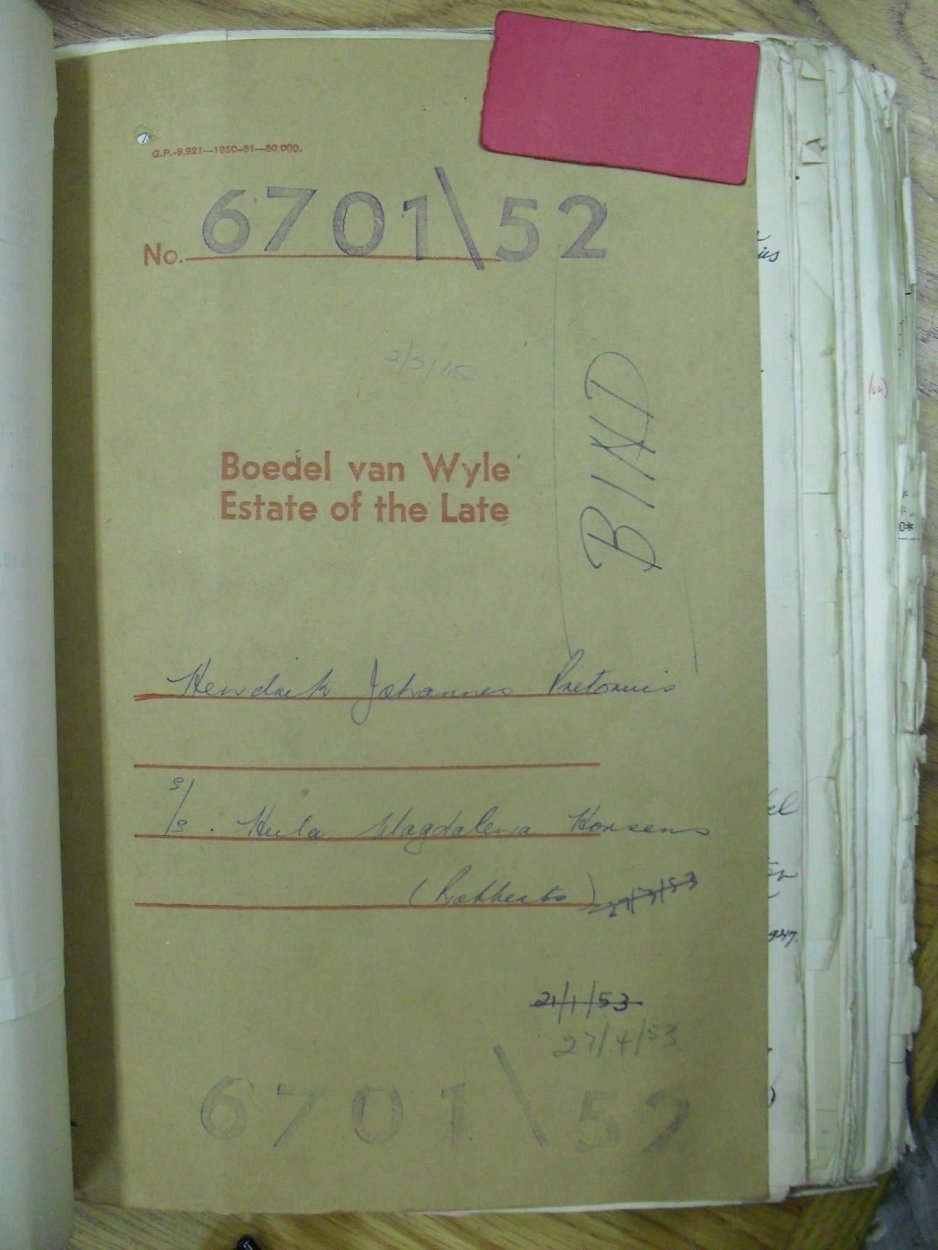 G.P.-S.921—1950-51—50,000.
No. 6701\52
BIND
Boedel van Wyle
Estate of the Late
Hendrik Johannes Pretorius
s/s. Magdalena
27/3/53
21/1/53
27/4/53
6701\52